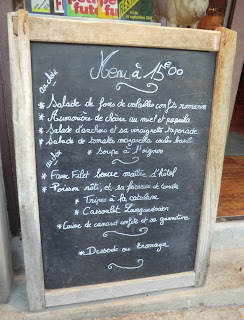 Menu à 15€00
au choix
* Salade de foies de volailles confits romarine
* Aumonière de chèvre au miel et paprika
* Salade d'anchois et sa vinaigrette tapenade
* Salade de tomates mozzarella coulis basilic
* soupe à l'oignon
au choix
* Faux Filet beurre maître d'hôtel
* Poisson rôti, et sa farandole de
* Tripes à la catalane
* Cassoulet Languedocien
* Cuisse de canard confite et sa garniture
* Dessert ou Fromage